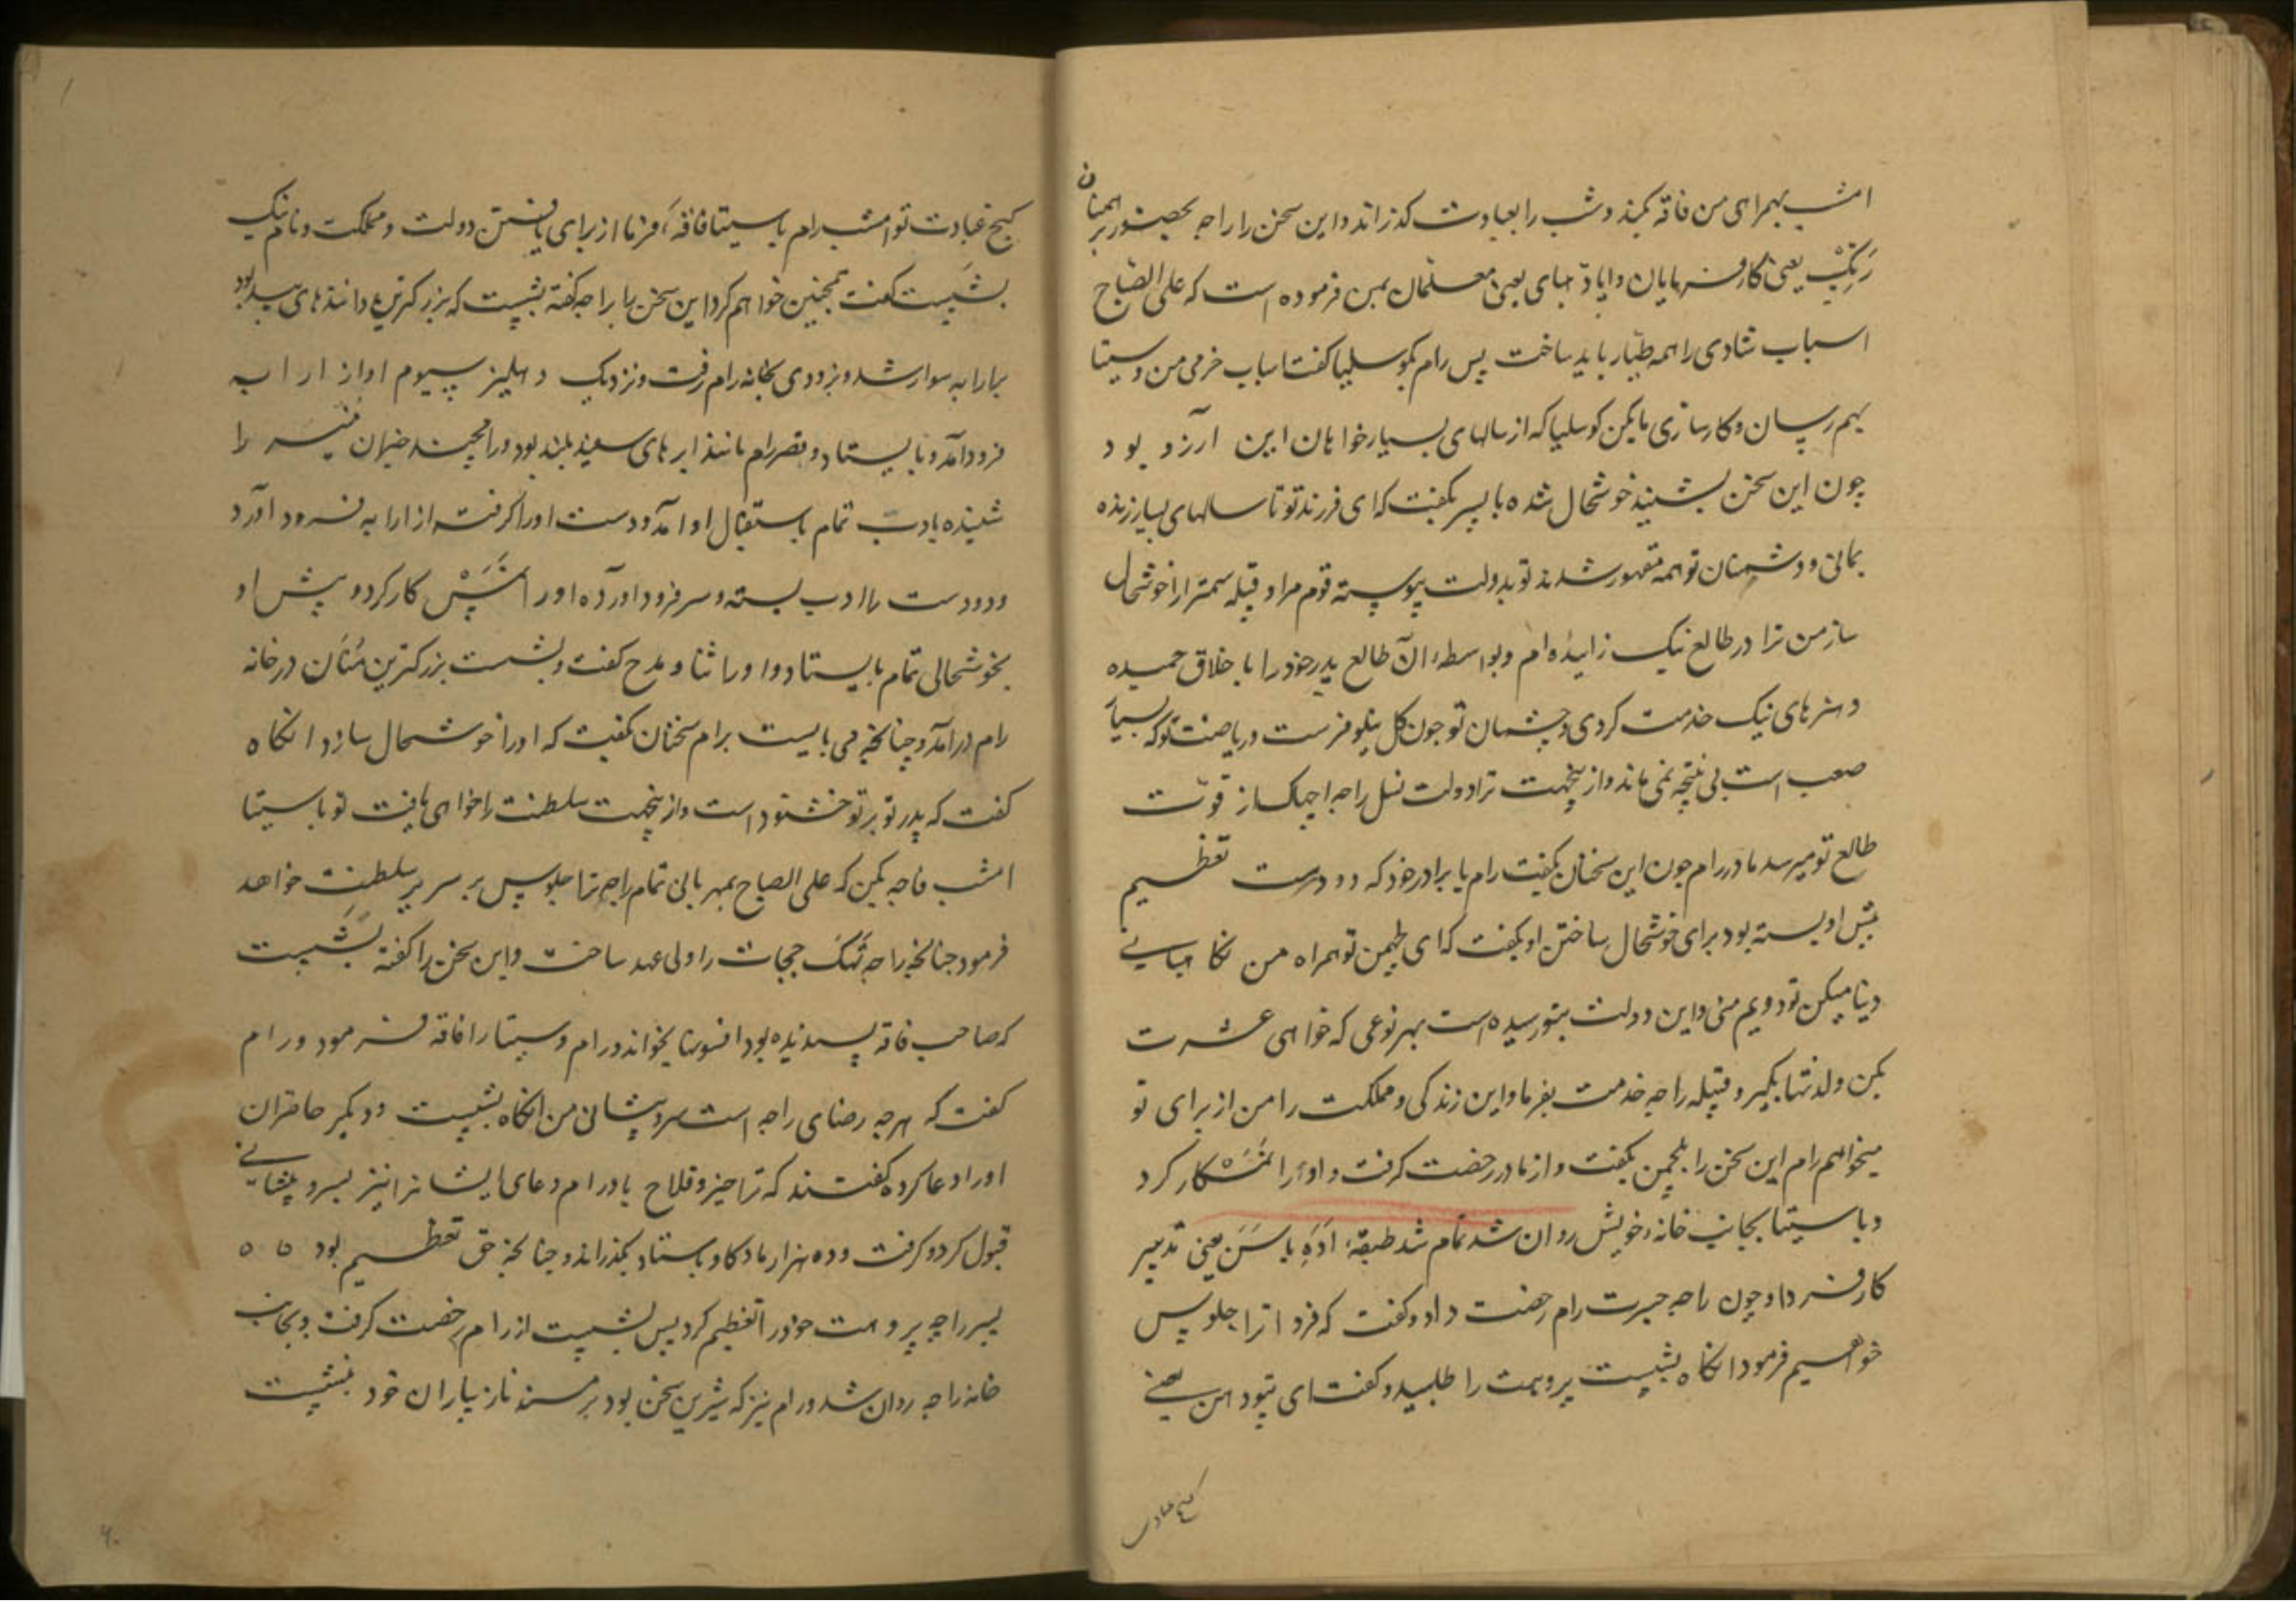 امشب بهمراهی من فاقه کند و شب را بعبادت گذراند و این سخن را راجه بحضور برهمنان
رتگ یعنی کارفرمایان و اپادهیای یعنی معلمان بمن فرموده است که علی الصباح
اسباب شادی را همه طیار باید ساخت پس رام بکوسلیا گفت اسباب خرمی من و سیتا
بهم رسان و کارسازی ما بکن کوسلیا که از سالهای بسیار خواهان این آرزو بود
چون این سخن بشنید خوشحال شده با پسر بگفت که ای فرزند تو تا سالهای بسیار زنده
بمانی و دشمنان تو همه مقهور شدند تو بدولت پیوسته قوم مرا و قبیله سمترا را خوشحال
ساز من ترا در طالع نیک زاییده ام و بواسطه آن طالع پدر خود را باخلاق حمیده
و هنرهای نیک خدمت کردی و چشمان تو چون گل نیلوفرست و ریاضت تو که بسیار
صعب است بی نتیجه نمی ماند و ازینجهت ترا دولت نسل راجه اچهاک از قوت
طالع تو میرسد مادر رام چون این سخنان بگفت رام با برادر خود که دو دست تعظیم
پیش او بسته بود برای خوشحال ساختن او بگفت که ای لچمن تو همراه من نگاهبانی
دنیا میکن تو دویم منی و این دولت بتو رسیده است بهر نوعی که خواهی عشرت
بکن و لذتها بگیر و قبیله راجه خدمت بفرما و این زندگی و مملکت را من از برای تو
میخواهم رام این سخن را بلچمن بگفت و از مادر رخصت گرفت و او را نمشکار کرد
و با سیتا بجانب خانه خویش روان شد تمام شد طبقه اده باسن یعنی تدبیر
کار فردا و چون راجه جسرت رام رخصت داد و گفت که فردا ترا جلوس
خواهیم فرمود انگاه بشیست پروهت را طلبید و گفت ای تپودهن یعنی
گنج عبادت
گنج عبادت تو امشب رام با سیتا فاقه فرما از برای یافتن دولت و مملکت و نام نیک
بشیست گفت همچنین خواهم کرد این سخن با راجه گفته بشیست که بزرگترین داننده های بید بود
بارابه سوار شد و بزودی بخانه رام رفت و نزدیک دهلیز سیوم او از ارابه
فرود آمد و بایستاد و قصر رام مانند ابرهای سفید بلند بود و رامچند خبران را
شنیده با ادب تمام باستقبال او آمد و دست او را گرفته از ارابه فرود آورد
و دو دست را ادب بسته و سر فرود آورده او را نمشکار کرد و پیش او
بخوشحالی تمام بایستاد و او را ثنا و مدح گفت و بشست بزرگترین منان در خانه
رام درآمد و چنانچه می بایست برام سخنان گفت که او را خوشحال سازد انگاه
گفت که پدر تو بر تو خشنود است و ازینجهت سلطنت را خواهی یافت تو با سیتا
امشب فاقه بکن که علی الصباح بمهربانی تمام راجه ترا جلوس بر سریر سلطنت خواهد
فرمود چنانچه راجه نهک ججات را ولی عهد ساخت و این سخن را گفته بشیست
که صاحب فاقه پسندیده بود افسونها بخواند و رام و سیتا را فاقه فرمود و رام
گفت که هرچه رضای راجه است بسر و پیشانی من انگاه بشیست و دیگر حاضران
او را دعا کرده گفتند که ترا خیر و فلاح باد و رام دعای ایشانرا نیز بسر و پیشانی
قبول کرد و گرفت و ده هزار ماده گاو باستاد بگذراند و چنانچه حق تعظیم بود
پسر راجه پروهت خود را تعظیم کرد پس بشیست از رام رخصت گرفت و بجانب
خانه راجه روان شد و رام نیز که شیرین سخن بود بر مسند ناز با یاران خود بنشست